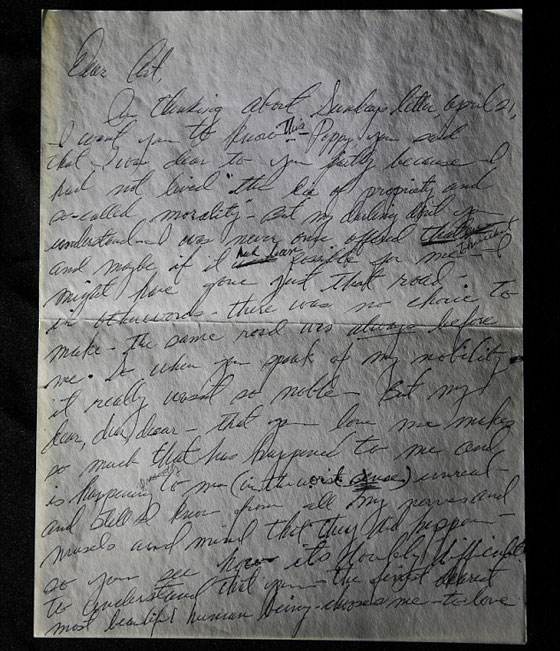 Dear Art,
In thinking about Sundays letter, April 21,
I want you to know This - Poppy you said
that I was dear to you partly because I
had not lived "the lie of propriety and
so-called, morality" - But my darling did you
understand - I was never once offered
and maybe if it had been possible for me - I
might have gone just that road -
in other words - there was no choice to
make - the same road was always before
me. So when you speak of my nobility
it really wasn't so noble - But my
dear, dear dear - that you love me makes
so much that has happened to me and
is happening to me (in the worst sense) unreal -
and still I know from all my nerves and
mussels and mind that they did happen -
so you see how its horribly difficult
to understand that you - the first dearest
most beautiful human being - chooses me - to love